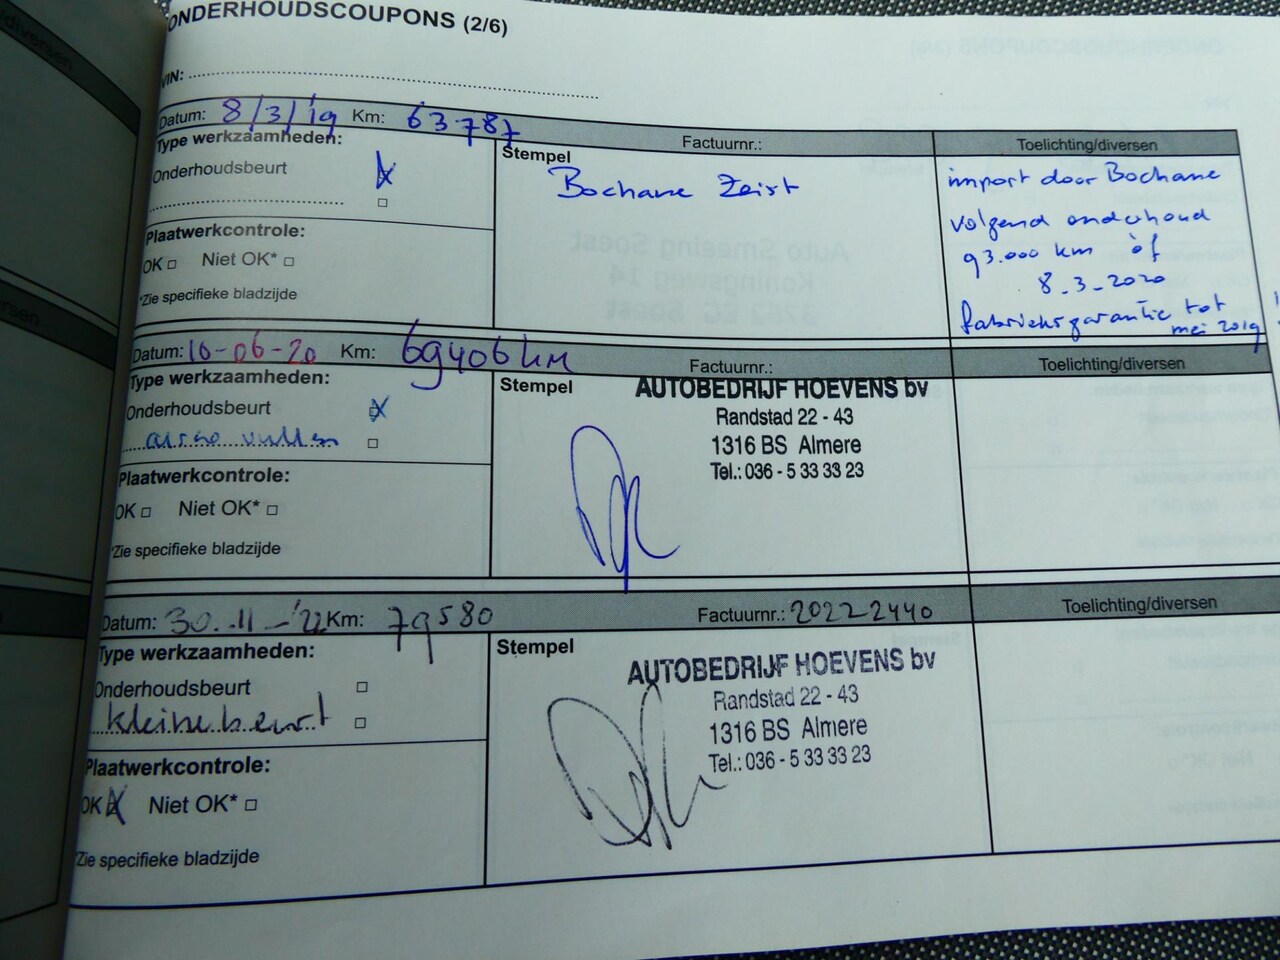 ONDERHOUDSCOUPONS (2/6)
VIN:
Datum: 8/3/'19 Km: 63787
Factuurnr.:
Toelichting/diversen
Type werkzaamheden:
Onderhoudsbeurt
Plaatwerkcontrole:
OK Niet OK*
*Zie specifieke bladzijde
Stempel
Bochane Zeist
import door Bochane
volgend onderhoud
93.000 km òf
8-3-2020
fabrieksgarantie tot
mei 2019
Datum: 16-06-20 Km: 69406 km
Factuurnr.:
Toelichting/diversen
Type werkzaamheden:
Onderhoudsbeurt
airco vullen
Plaatwerkcontrole:
OK Niet OK*
*Zie specifieke bladzijde
Stempel
AUTOBEDRIJF HOEVENS bv
Randstad 22 - 43
1316 BS Almere
Tel.: 036 - 5 33 33 23
Datum: 30-11-'22 Km: 79580
Factuurnr.: 20222440
Toelichting/diversen
Type werkzaamheden:
Onderhoudsbeurt
kleine beurt
Plaatwerkcontrole:
OK Niet OK*
*Zie specifieke bladzijde
Stempel
AUTOBEDRIJF HOEVENS bv
Randstad 22 - 43
1316 BS Almere
Tel.: 036 - 5 33 33 23